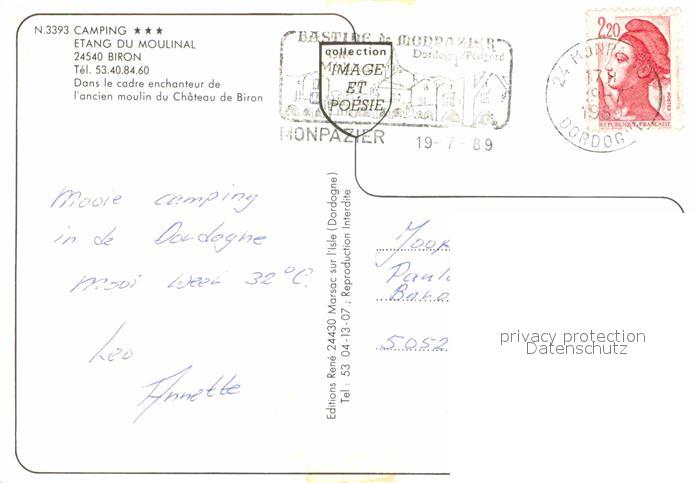 N.3393 CAMPING ★★★
ETANG DU MOULINAL
24540 BIRON
Tél. 53.40.84.60
Dans le cadre enchanteur de
l'ancien moulin du Château de Biron
BASTIDE de MONPAZIER
Dordogne/Périgord
collection
IMAGE
ET
POÉSIE
MONPAZIER 19-7-89
2,20
24 MONPAZIER
17H
19-7
1989
DORDOGNE
REPUBLIQUE FRANÇAISE
POSTES
Mooie camping
in de Dordogne
Mooi weer 32°C.
Leo
Annette
Editions René 24430 Marsac sur l'Isle (Dordogne)
Tel : 53 04-13-07 ; Reproduction Interdite
5052
privacy protection
Datenschutz